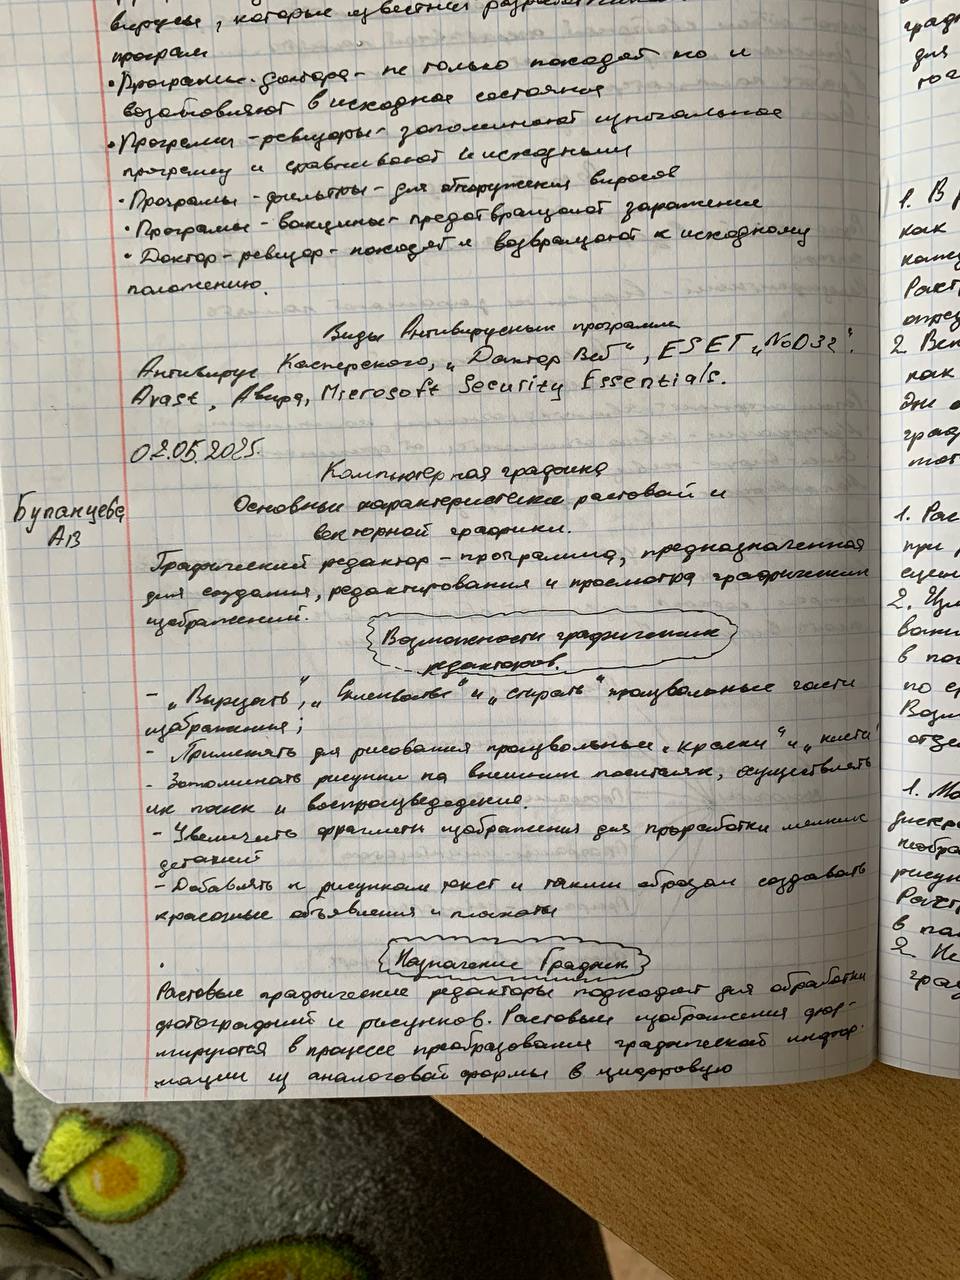 вирусы, которые известны
програм
• Програмы-доктора - не только находят но и
возобновляют в исходное состояние
• Програмы - ревизоры - запоминают
програму и сравнивают с исходными
• Програмы - фильтры - для обнаружения вирусов
• Програмы - вакцины - предотвращают заражение
• Доктор - ревизор - находят и возвращают к исходному
положению.
Виды Антивирусных программ
Антивирус Касперского, „Доктор Веб“, ESET „NoD32“.
Avast, Авира, Microsoft Security Essentials.
02.05.2025.
Компьютерная графика
Основные характеристики растовой и
векторной графики.
А13
Графический редактор - программа, предназначенная
для создания, редактирования и просмотра графических
изображений.
Возможности графических
редакторов.
- „Вырезать“, „вклеивать“ и „стирать“ произвольные части
изображения;
- Применять для рисования произвольные „краски“ и „кисти“
- Запоминать рисунки на внешних носителях, осуществлять
их поиск и воспроизведедение.
- Увеличить фрагменты изображения для проработки мелких
деталей
- Добавлять к рисункам текст и таким образом создавать
красочные объявления и плакаты
Назначение График
Растовые графические редакторы подходят для обработки
фотографий и рисунков. Растовые изображения фор-
мируются в процессе преобразования графической инфор-
мации из аналоговой формы в цифровую
для
1. В
как
2. Век
как
1. Рас
при
2.
в
по
1.
в
2. Не